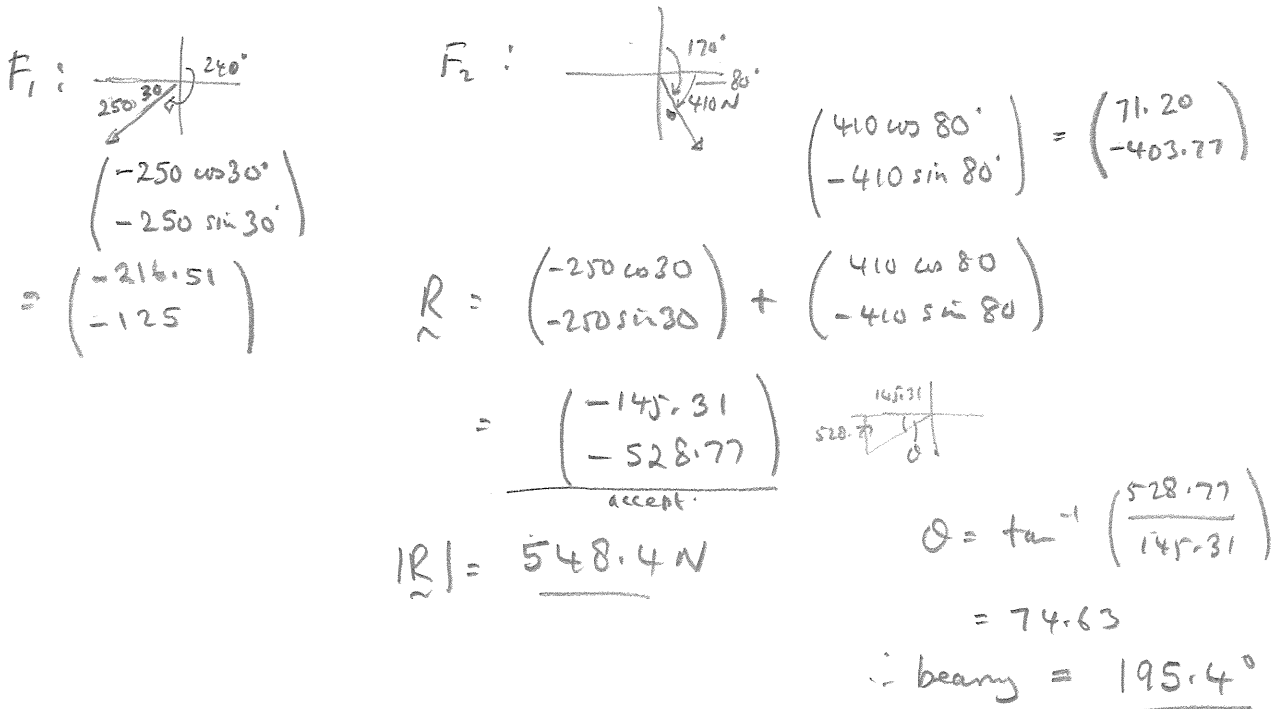 F₁ :
240°
30
250
(-250 cos30°
-250 sin 30°)
= (-216.51
-125)
F₂ :
170°
80°
410 N
(410 cos 80°
-410 sin 80°) = (71.20
-403.77)
R = (-250 cos30
-250 sin30) + (410 cos 80
-410 sin 80)
= (-145.31
-528.77)
accept.
145.31
528.77
θ
|R| = 548.4 N
θ = tan⁻¹ (528.77 / 145.31)
= 74.63
∴ bearing = 195.4°